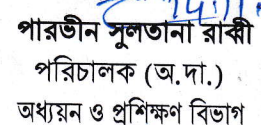 পারভীন সুলতানা রাব্বী
পরিচালক (অ.দা.)
অধ্যয়ন ও প্রশিক্ষণ বিভাগ